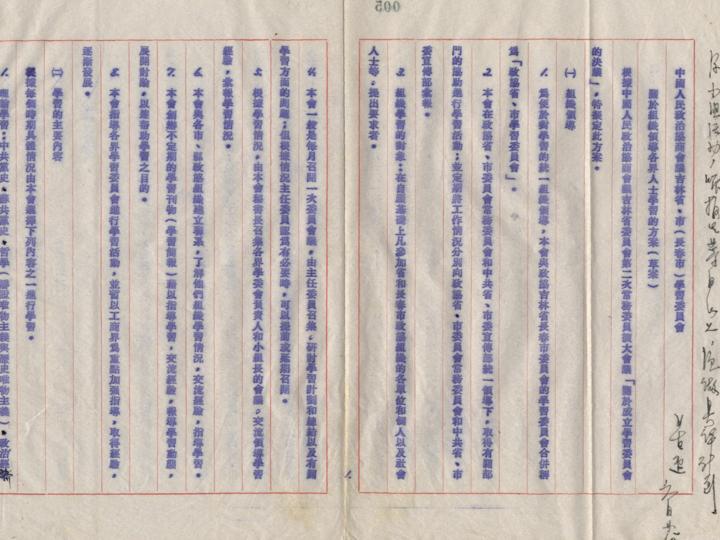 005
中國人民政治協商會議吉林省、市（長春市）學習委員會
關於組織領導各界人士學習的方案（草案）
根據中國人民政治協商會議吉林省委員會第二次常務委員擴大會議「關於成立學習委員會
的決議」，特擬定此方案。
㈠ 組織領導
1. 爲便於對學習的統一組織領導，本會與政協吉林省長春市委員會的學習委員會合併稱
爲「政協省、市學習委員會」。
2. 本會在政協省、市委員會常務委員會和中共省、市委宣傳部統一領導下，取得有關部
門的協助進行學習活動；並定期將工作情況分別向政協省、市委員會常務委員會和中共省、市
委宣傳部彙報。
3. 組織學習的對象：在自願基礎上凡參加省和長春市政協組織的各單位和個人以及社會
人士等，提出要求者。
4. 本會一般爲每月召開一次委員會議，由主任委員召集，研討學習計劃和總結以及有關
學習方面的問題；但根據情況主任委員認爲有必要時，可以提前或延期召開。
5. 根據學習情況，由本會秘書長召集各界學委會負責人和小組長的會議，交流領導學習
經驗，彙報學習情況。
6. 本會與各市、縣政協組織建立聯系，了解他們組織學習情況，交流經驗，指導學習。
7. 本會創辦不定期的學習刊物（學習簡報）藉以指導學習，交流經驗，報導學習動態，
展開討論，以達幫助學習之目的。
8. 本會指導各界學習委員會進行學習活動，並暫以工商界爲重點加強指導，取得經驗，
逐漸發展。
㈡ 學習的主要內容
根據各個時期具體情況由本會選擇下列內容之一進行學習。
1. 理論學習：中共黨史、聯共黨史、哲學（辯證唯物主義與歷史唯物主義）、政治經濟